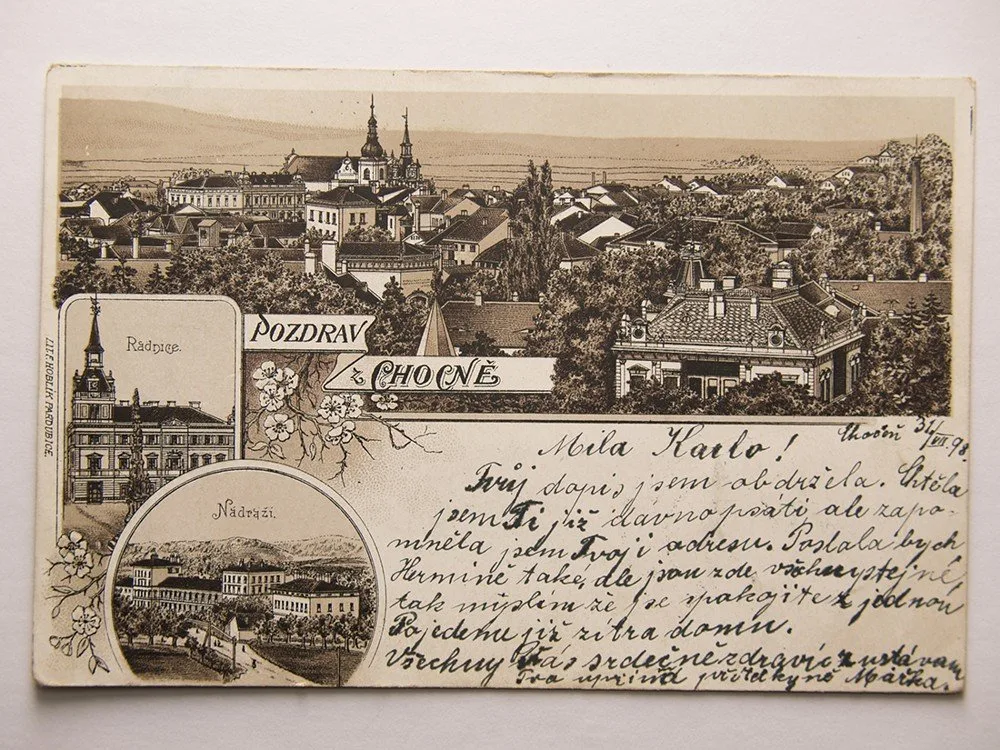 POZDRAV
z CHOCNĚ
Radnice.
Nádraží.
LIT. F. HOBLÍK PARDUBICE.
Choceň 31/VII 98
Milá Karlo!
Tvůj dopis jsem obdržela. Chtěla
jsem Ti již dávno psáti ale zapo-
mněla jsem Tvoji adresu. Poslala bych
Hermině také, ale jsou zde všechny stejné,
tak myslím že se spokojíte z jednou
Pojedeme již zítra domů.
Všechny Vás srdečně zdravíc zůstávám
Tvá upřímná přítelkyně Mářka.